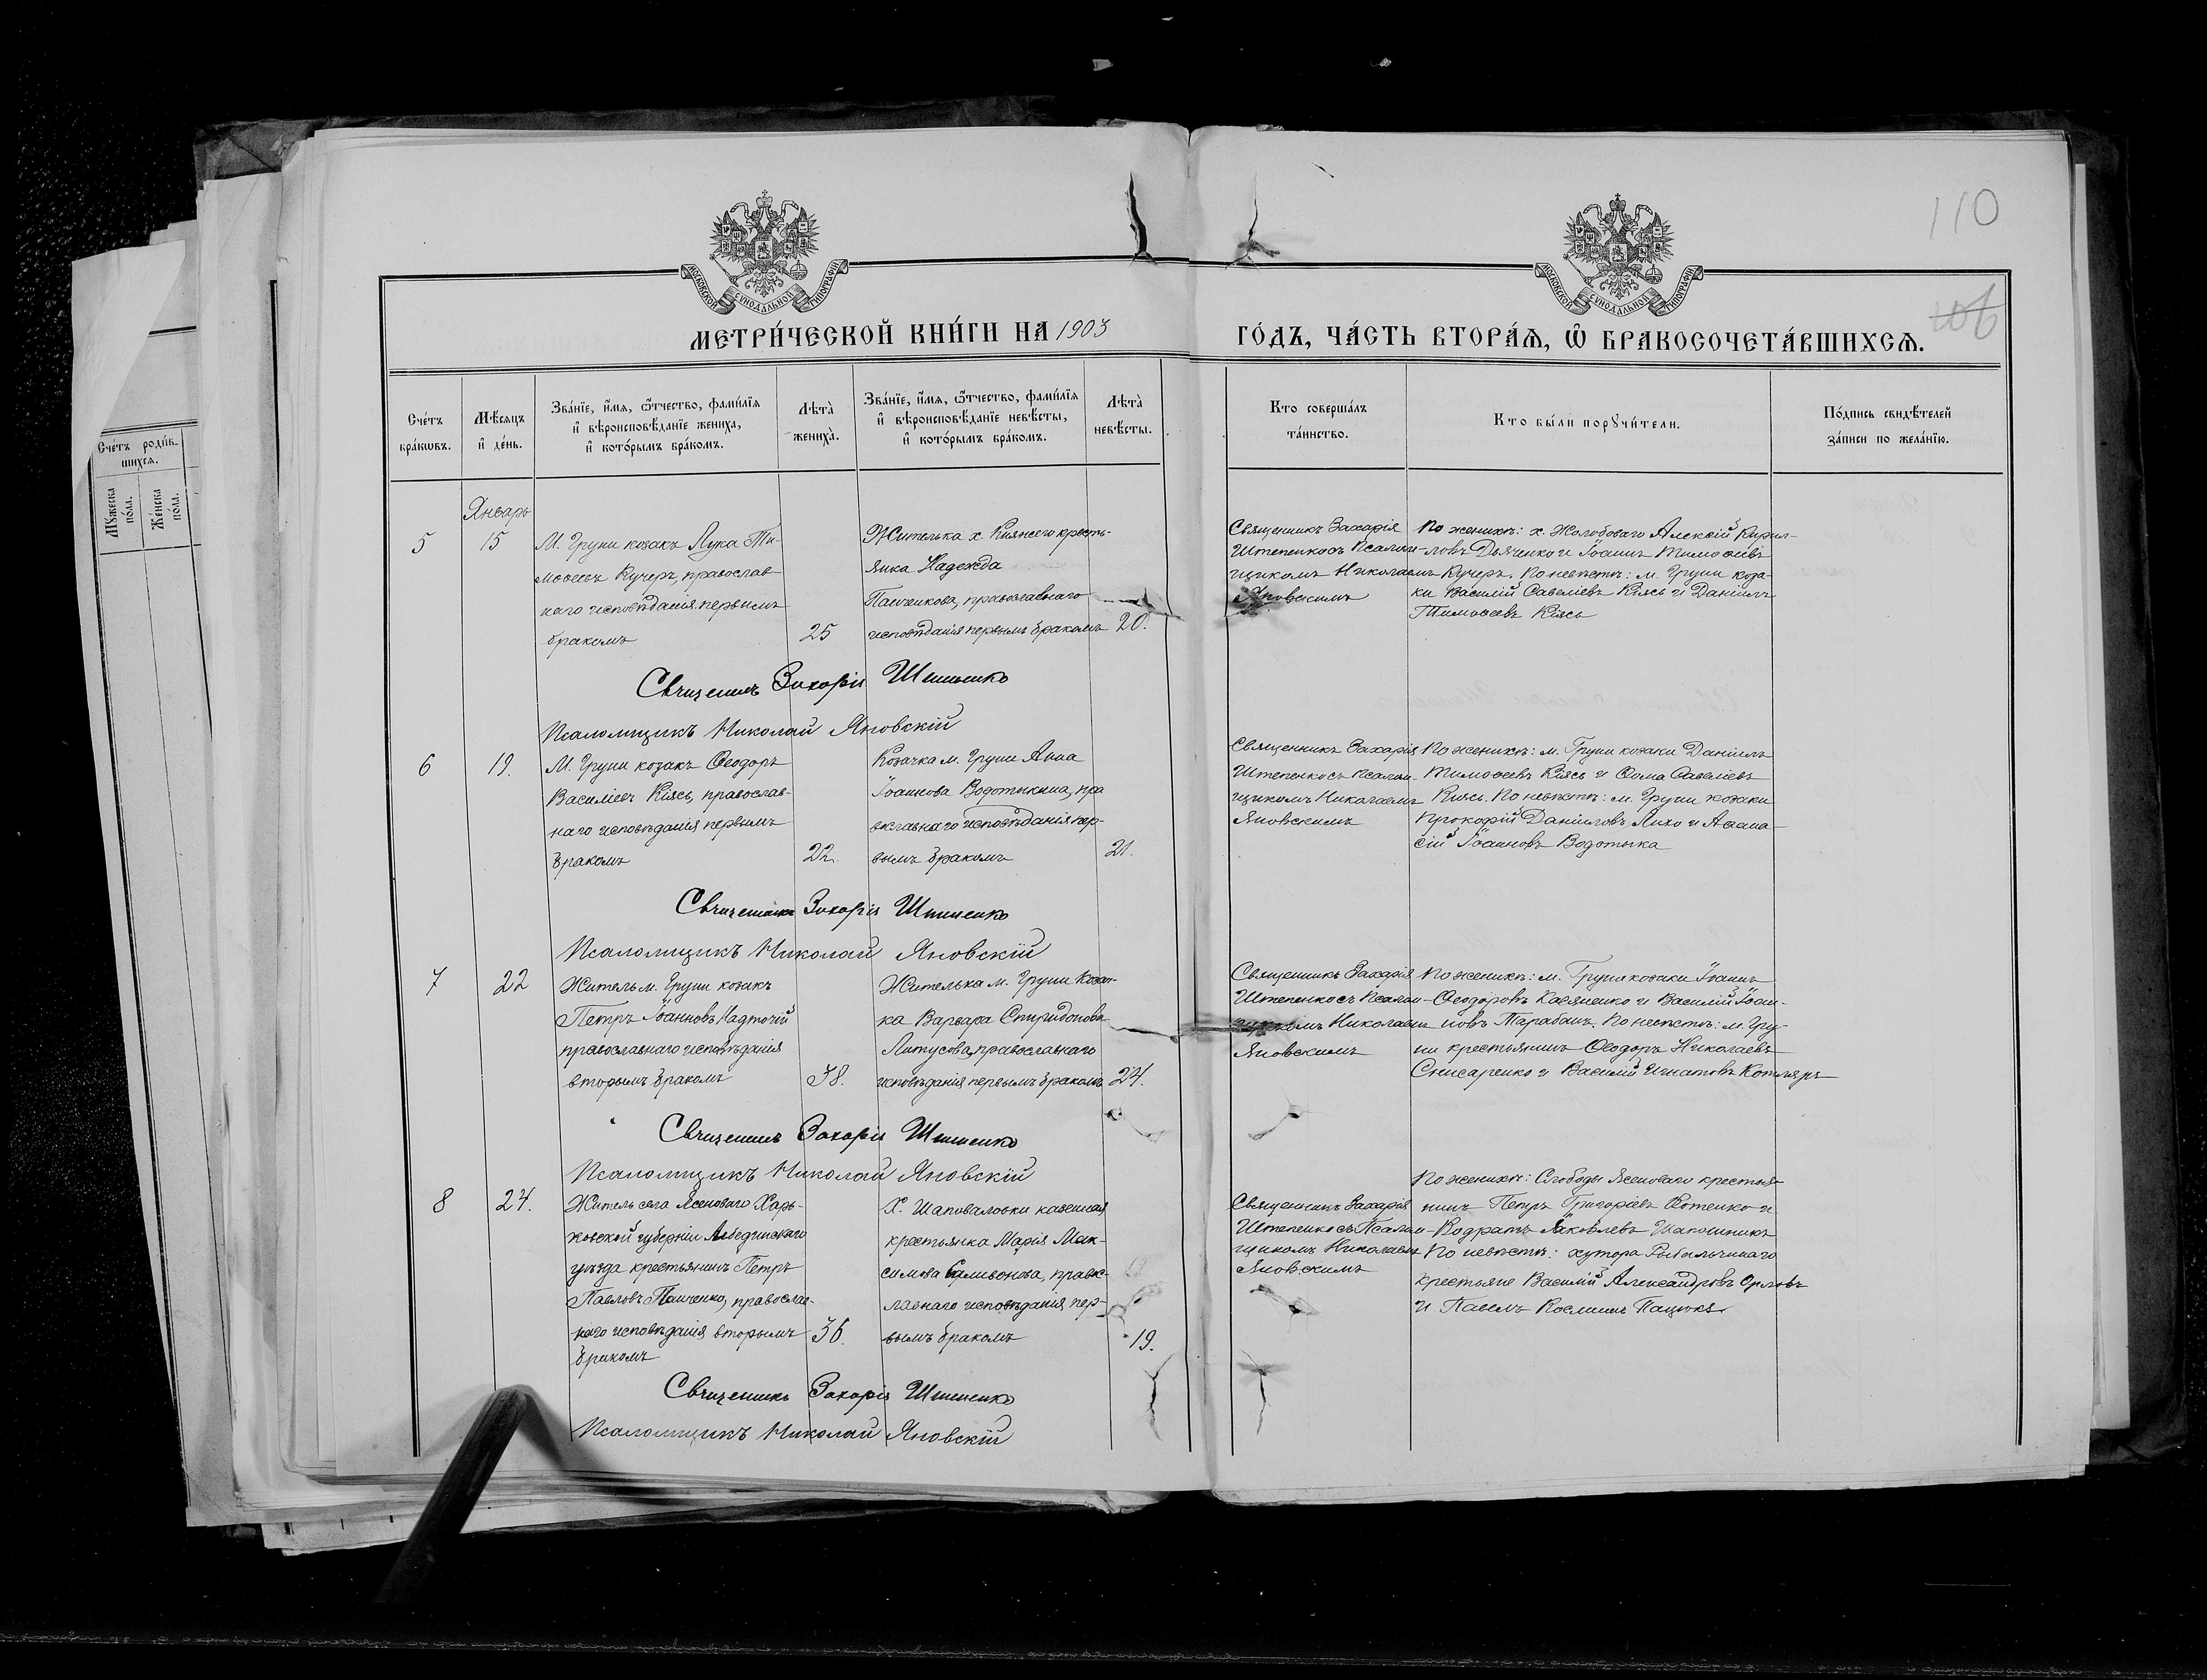 110
106
МОСКОВСКОЙ СУНОДАЛЬНОЙ ТИПОГРАФІИ
МОСКОВСКОЙ СУНОДАЛЬНОЙ ТИПОГРАФІИ
МЕТРИ́ЧЕСКОЙ КНИ́ГИ НА 1903
ГО́ДЪ, ЧА́СТЬ ВТОРА́Ѧ, Ѽ БРАКОСОЧЕТА́ВШИХСѦ.
Сче́тъ роди́в-
шихсѧ.
Мꙋ́жеска
по́ла.
Же́нска
по́ла.
Сче́тъ
бра́кѡвъ.
Мѣ́сѧцъ
и҆ де́нь.
Зва́нїе, и҆́мѧ, ѻ҆́тчество, фами́лїѧ
и҆ вѣроисповѣ́данїе жениха̀,
и҆ кото́рымъ бра́комъ.
Лѣта̀
жениха̀.
Зва́нїе, и҆́мѧ, ѻ҆́тчество, фами́лїѧ
и҆ вѣроисповѣ́данїе невѣ́сты,
и҆ кото́рымъ бра́комъ.
Лѣта̀
невѣ́сты.
Кто соверша́лъ
та́инство.
Кто бы́ли порꙋчи́тели.
По́дпись свидѣ́телей
за́писи по жела́нїю.
Январь
5
15
М. Груни козакъ Лука Ти-
моѳеевъ Кучеръ, православ-
наго исповѣданія первымъ
бракомъ
25
Жителька х. Княжего кресть-
янка Надежда
Панченкова, православнаго
исповѣданія первымъ бракомъ
20.
Священникъ Захарія
Штепенко съ Псалом-
щикомъ Николаемъ
Яновскимъ
По женихѣ: х. Жолобоваго Алексій Кирил-
ловъ Дьяченко и Іоаннъ Тимоѳеевъ
Кучеръ. По невѣстѣ: м. Груни коза-
ки Василій Савеліевъ Кіясь и Даніилъ
Тимоѳеевъ Кіясь
Священникъ Захарія Штепенко
Псаломщикъ Николай Яновскій
6
19.
М. Груни козакъ Ѳеодоръ
Василіевъ Кіясь, православ-
наго исповѣданія первымъ
бракомъ
22.
Козачка м. Груни Анна
Іоаннова Водотыкина, пра
вславнаго исповѣданія пер-
вымъ бракомъ
21.
Священникъ Захарія
Штепенко съ Псалом-
щикомъ Николаемъ
Яновскимъ
По женихѣ: м. Груни козаки Даніилъ
Тимоѳеевъ Кіясь и Ѳома Савеліевъ
Кіясь. По невѣстѣ: м. Груни козаки
Прокофій Даниловъ Лихо и Аѳана-
сій Іоанновъ Водотыка
Священникъ Захарія Штепенко
Псаломщикъ Николай Яновскій
7
22
Житель м. Груни козакъ
Петръ Іоанновъ Надточій
православнаго исповѣданія
вторымъ бракомъ
38.
Жителька м. Груни Козач-
ка Варвара Спиридонова
Литусова, православнаго
исповѣданія первымъ бракомъ
24.
Священникъ Захарія
Штепенко съ Псалом-
щикомъ Николаемъ
Яновскимъ
По женихѣ: м. Груни козаки Іоаннъ
Ѳеодоровъ Касяненко и Василій Іоан-
новъ Тарабанъ. По невѣстѣ: м. Гру-
ни крестьянинъ Ѳеодоръ Николаевъ
Снисаренко и Василій Игнатовъ Котляръ
Священникъ Захарія Штепенко
Псаломщикъ Николай Яновскій
8
24.
Житель села Ясеноваго Харь-
ковской губерніи Лебединскаго
уѣзда крестьянинъ Петръ
Павловъ Панченко, православ-
наго исповѣданія вторымъ
бракомъ
36.
Х. Шаповаловки казенная
крестьянка Марія Мак-
симова правос-
лавнаго исповѣданія пер-
вымъ бракомъ
19.
Священникъ Захарія
Штепенко съ Псалом-
щикомъ Николаемъ
Яновскимъ
По женихѣ: Слободы Ясеноваго крестья-
нинъ Петръ Григоріевъ и
Кодратъ Яковлевъ
По невѣстѣ: хутора
крестьяне Василій Александровъ Орловъ
и Павелъ Косминъ Пацюкъ
Священникъ Захарія Штепенко
Псаломщикъ Николай Яновскій